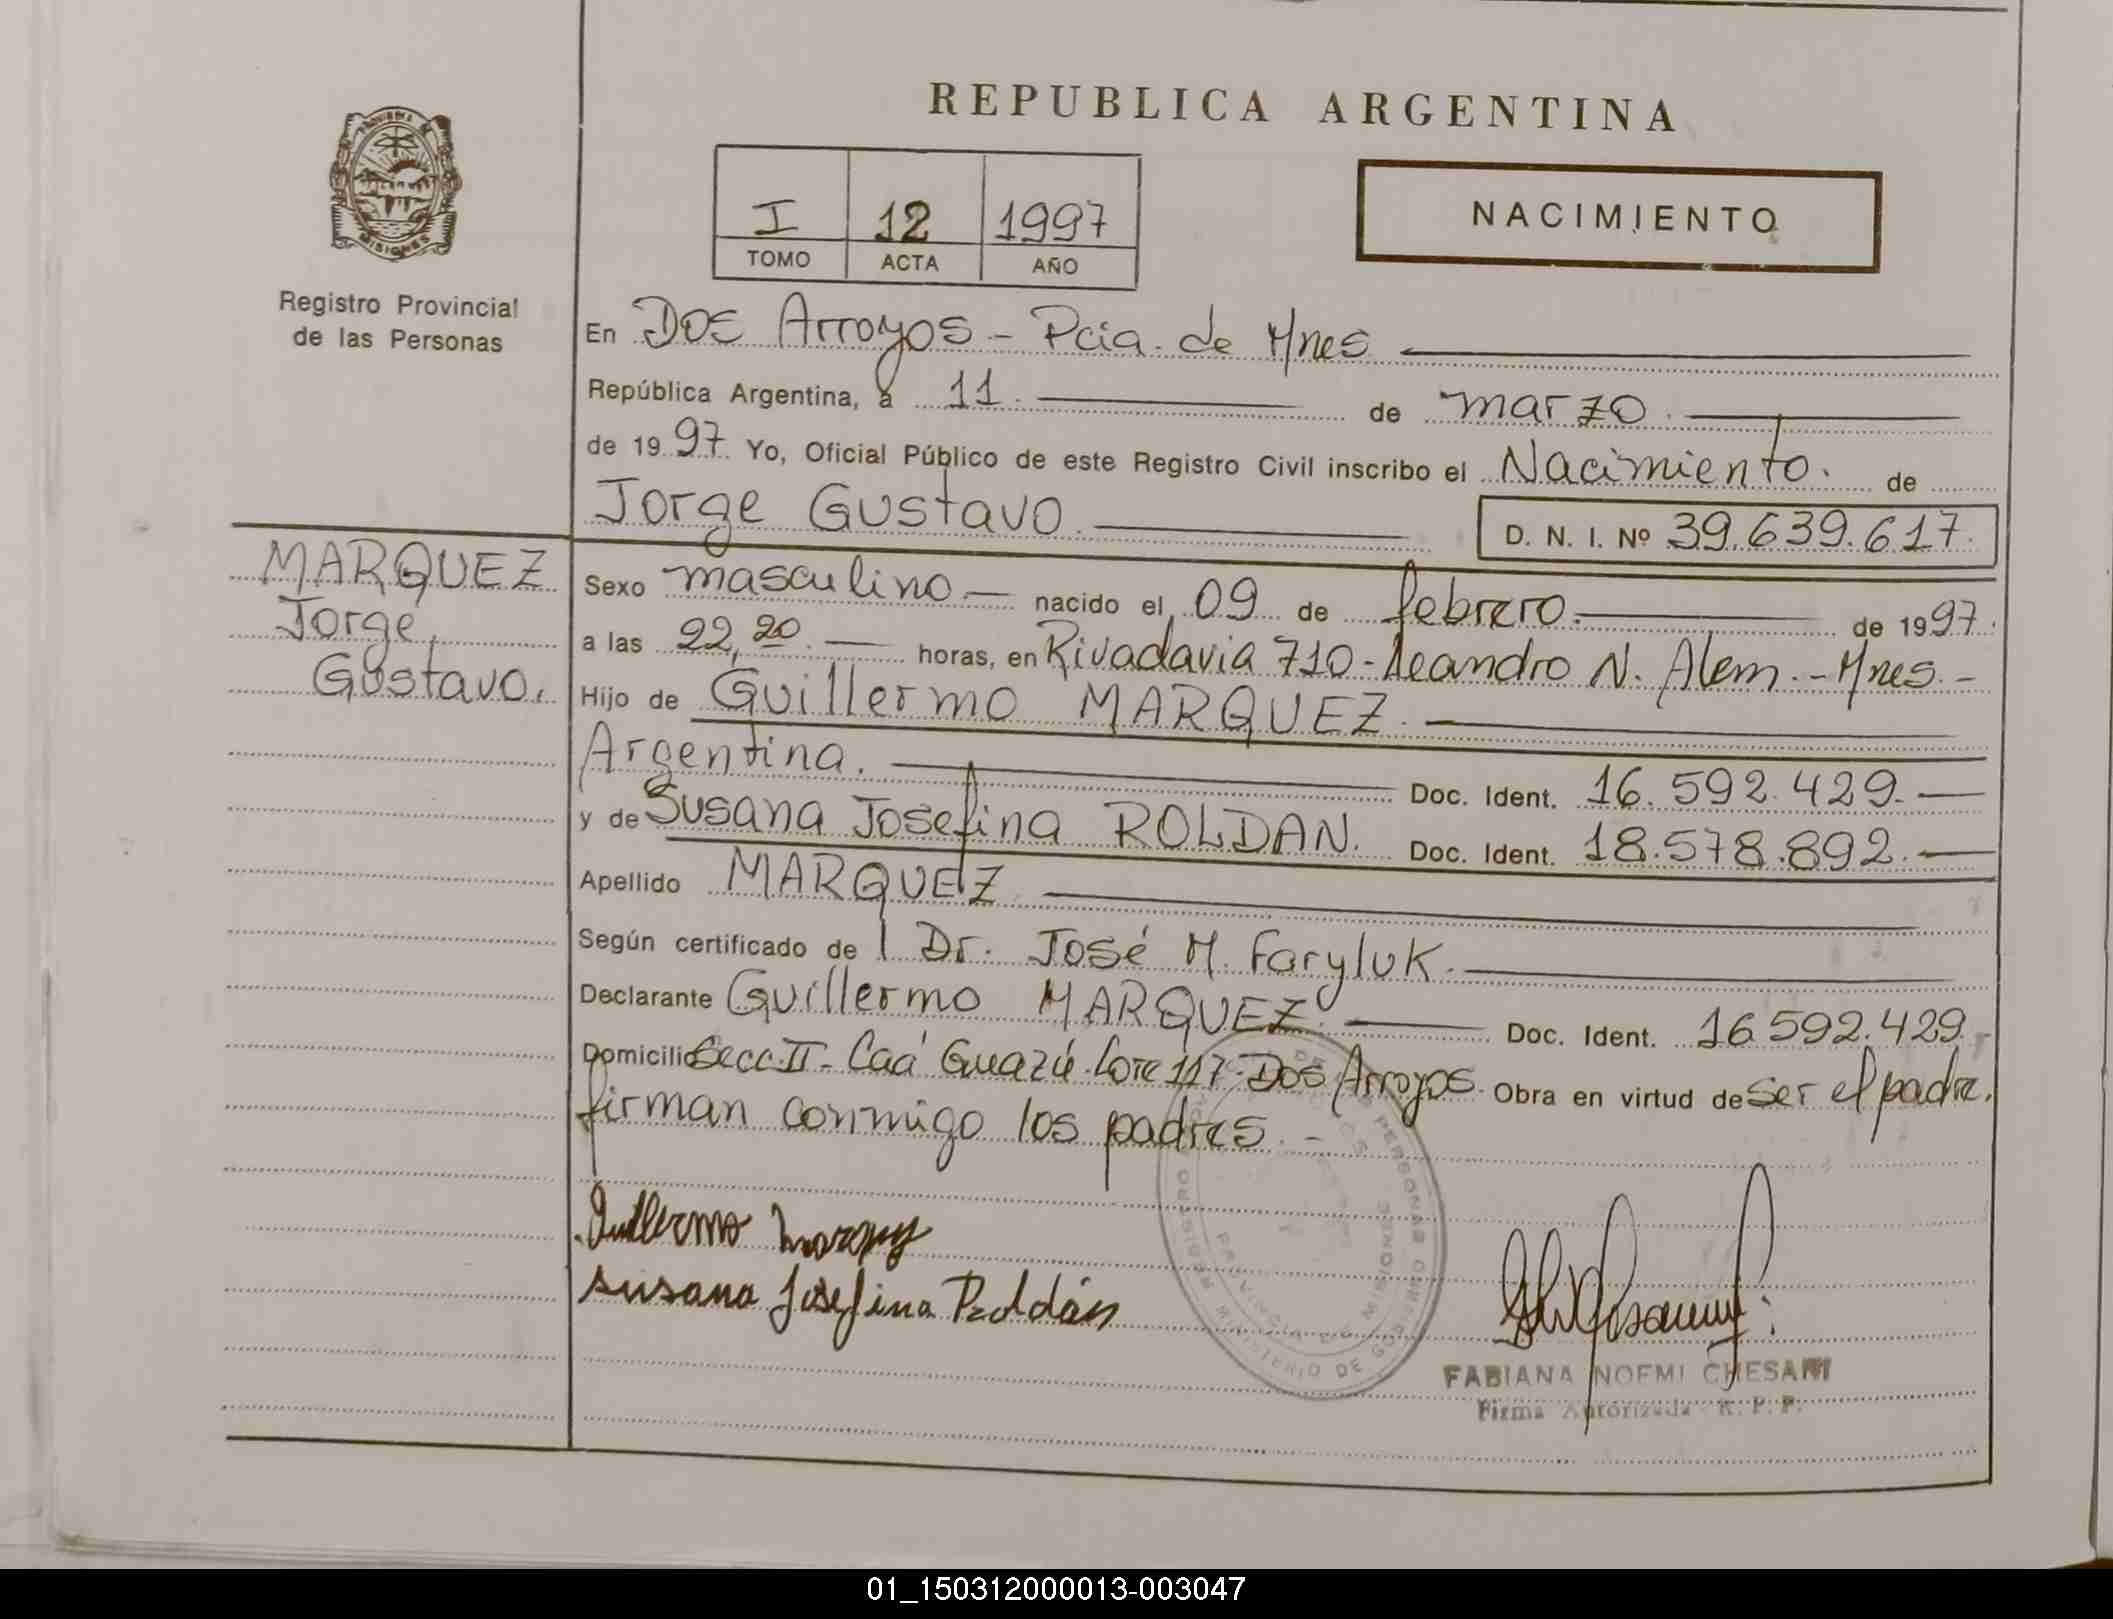 REPUBLICA ARGENTINA
I 12 1997
TOMO ACTA AÑO
NACIMIENTO
MISIONES
Registro Provincial
de las Personas
En Dos Arroyos - Pcia. de Mnes
República Argentina, a 11. de marzo.
de 1997. Yo, Oficial Público de este Registro Civil inscribo el Nacimiento. de
Jorge Gustavo. D. N. I. Nº 39.639.617.
MARQUEZ
Jorge,
Gustavo.
Sexo masculino nacido el 09 de febrero. de 1997.
a las 22,20. horas, en Rivadavia 710 - Leandro N. Alem. - Mnes. -
Hijo de Guillermo MARQUEZ.
Argentina. Doc. Ident. 16.592.429.
y de Susana Josefina ROLDAN. Doc. Ident. 18.578.892.
Apellido MARQUEZ
Según certificado de Dr. José M. Faryluk.
Declarante Guillermo MARQUEZ. Doc. Ident. 16.592.429.
Domicilio Secc. II - Caá Guazú - Lote 117 - Dos Arroyos. Obra en virtud de ser el padre.
firman conmigo los padres. -
Guillermo Marquez
Susana Josefina Roldán
FABIANA NOEMI CHESANI
Firma Autorizada R. P. P.
01_150312000013-003047